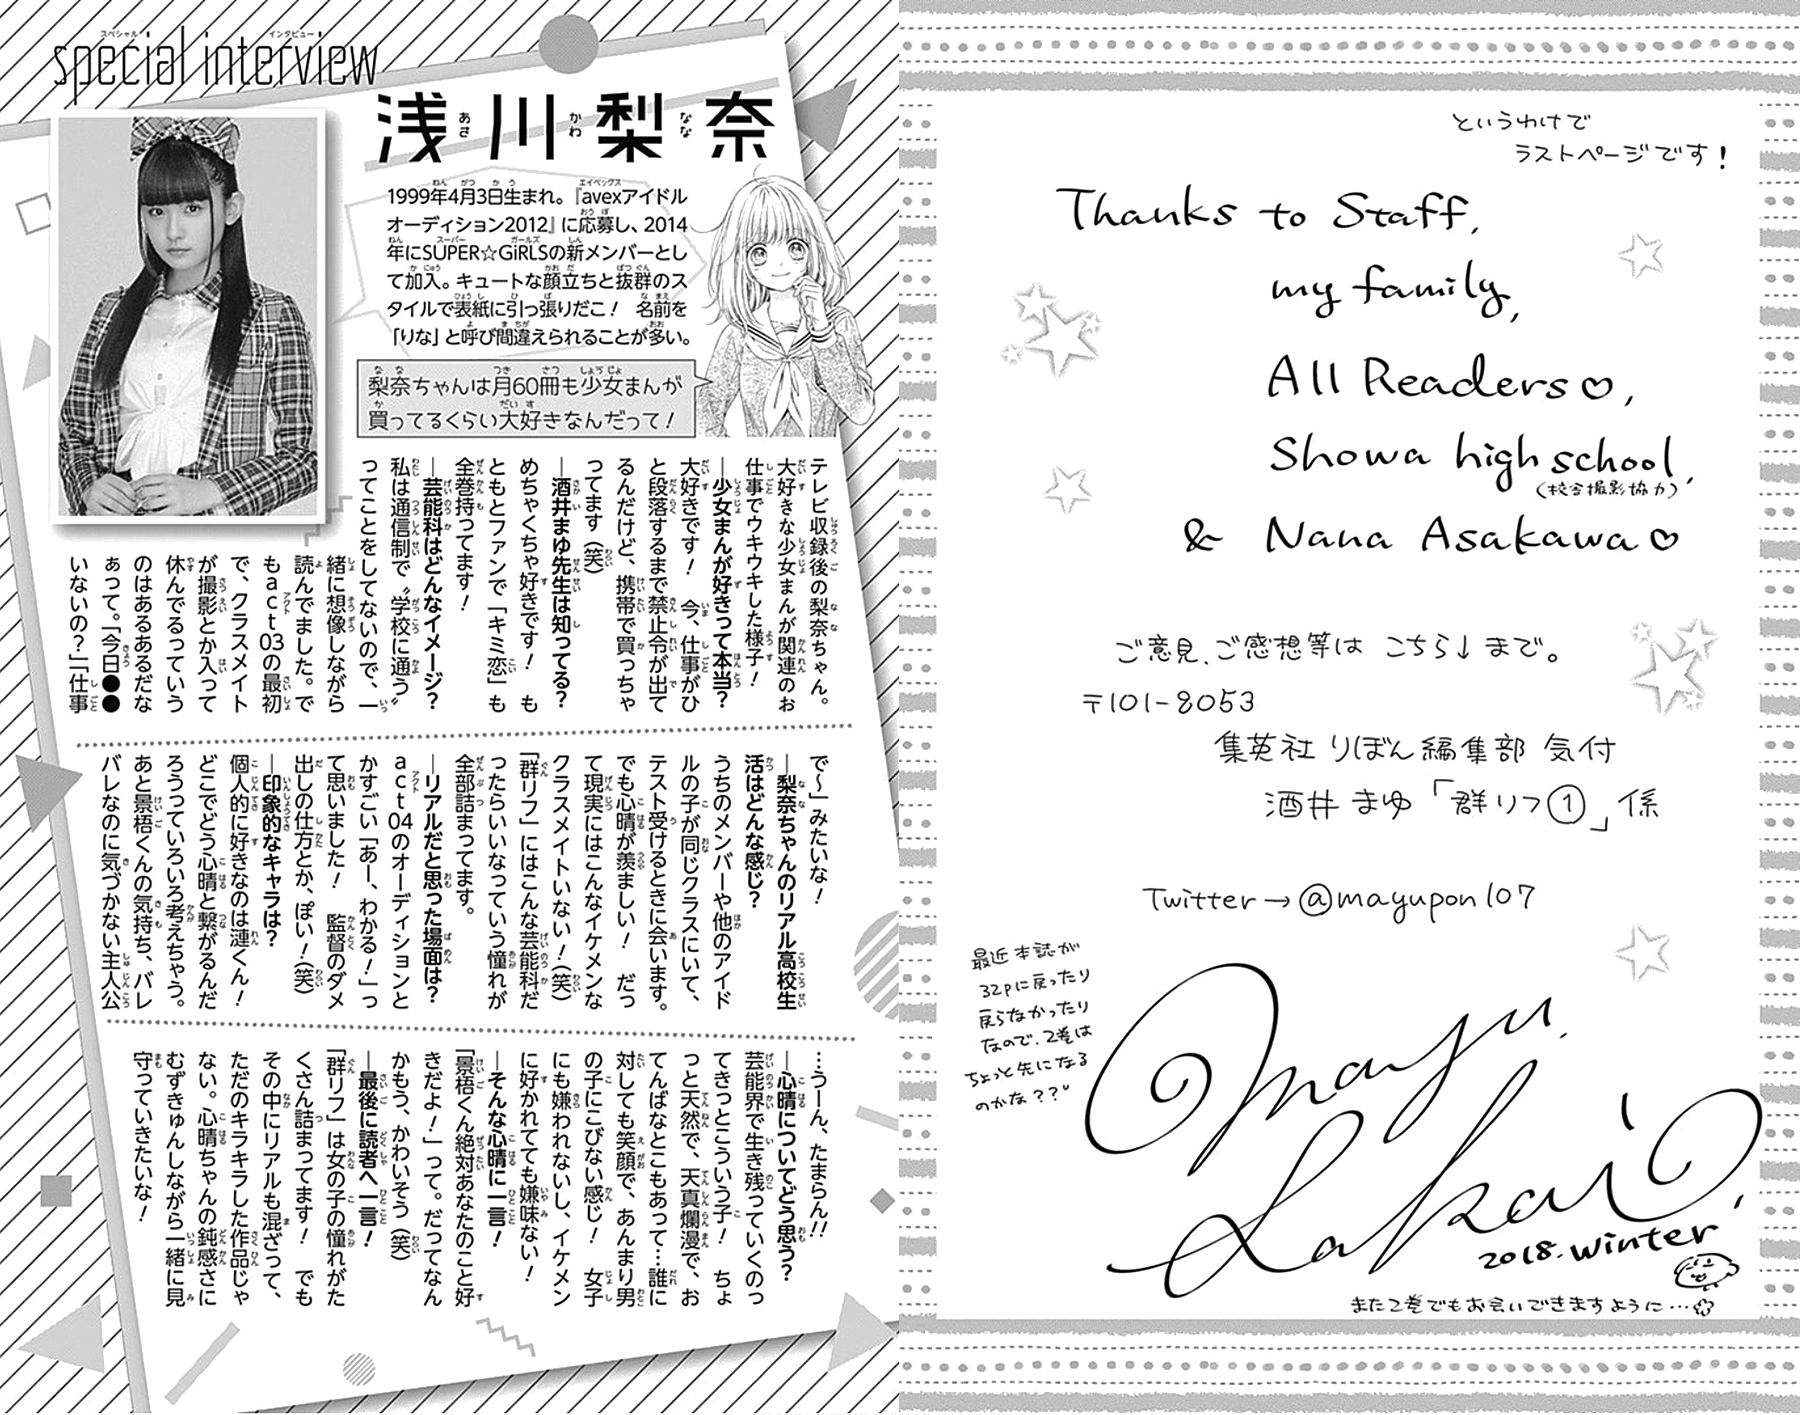 special interview
浅川梨奈
1999年4月3日生まれ。『avexアイドル
オーディション2012』に応募し、2014
年にSUPER☆GiRLSの新メンバーとし
て加入。キュートな顔立ちと抜群のス
タイルで表紙に引っ張りだこ！　名前を
「りな」と呼び間違えられることが多い。
梨奈ちゃんは月60冊も少女まんが
買ってるくらい大好きなんだって！
テレビ収録後の梨奈ちゃん。
大好きな少女まんが関連のお
仕事でウキウキした様子！
―少女まんが好きって本当？
大好きです！　今、仕事がひ
と段落するまで禁止令が出て
るんだけど、携帯で買っちゃ
ってます（笑）
―酒井まゆ先生は知ってる？
めちゃくちゃ好きです！　も
ともとファンで「キミ恋」も
全巻持ってます！
―芸能科はどんなイメージ？
私は通信制で〝学校に通う〟
ってことをしてないので、一
緒に想像しながら
読んでました。で
もact03の最初
で、クラスメイト
が撮影とか入って
休んでるっていう
のはあるあるだな
あって。「今日●●
いないの？」「仕事
で〜」みたいな！
―梨奈ちゃんのリアル高校生
活はどんな感じ？
うちのメンバーや他のアイド
ルの子が同じクラスにいて、
テスト受けるときに会います。
でも心晴が羨ましい！　だっ
て現実にはこんなイケメンな
クラスメイトいない！（笑）
『群リフ』にはこんな芸能科だ
ったらいいなっていう憧れが
全部詰まってます。
―リアルだと思った場面は？
act04のオーディションと
かすごい「あー、わかる！」っ
て思いました！　監督のダメ
出しの仕方とか、ぽい！（笑）
―印象的なキャラは？
個人的に好きなのは漣くん！
どこでどう心晴と繋がるんだ
ろうっていろいろ考えちゃう。
あと景梧くんの気持ち、バレ
バレなのに気づかない主人公
…うーん、たまらん!!
―心晴についてどう思う？
芸能界で生き残っていくのっ
てきっとこういう子！　ちょ
っと天然で、天真爛漫で、お
てんばなとこもあって…誰に
対しても笑顔で、あんまり男
の子にこびない感じ！　女子
にも嫌われないし、イケメン
に好かれてても嫌味ない！
―そんな心晴に一言！
「景梧くん絶対あなたのこと好
きだよ！」って。だってなん
かもう、かわいそう（笑）
―最後に読者へ一言！
『群リフ』は女の子の憧れがた
くさん詰まってます！　でも
その中にリアルも混ざって、
ただのキラキラした作品じゃ
ない。心晴ちゃんの鈍感さに
むずきゅんしながら一緒に見
守っていきたいな！
というわけで
ラストページです！
Thanks to Staff,
my family,
All Readers♡,
Showa high school,
（校舎撮影協力）
& Nana Asakawa♡
ご意見、ご感想等は こちら↓まで。
〒101-8053
集英社 りぼん編集部 気付
酒井まゆ「群リフ①」係
Twitter→@mayupon107
最近本誌が
32pに戻ったり
戻らなかったり
なので、2巻は
ちょっと先になる
のかな？？
Mayu.
Sakai.
2018.winter
また2巻でもお会いできますように…